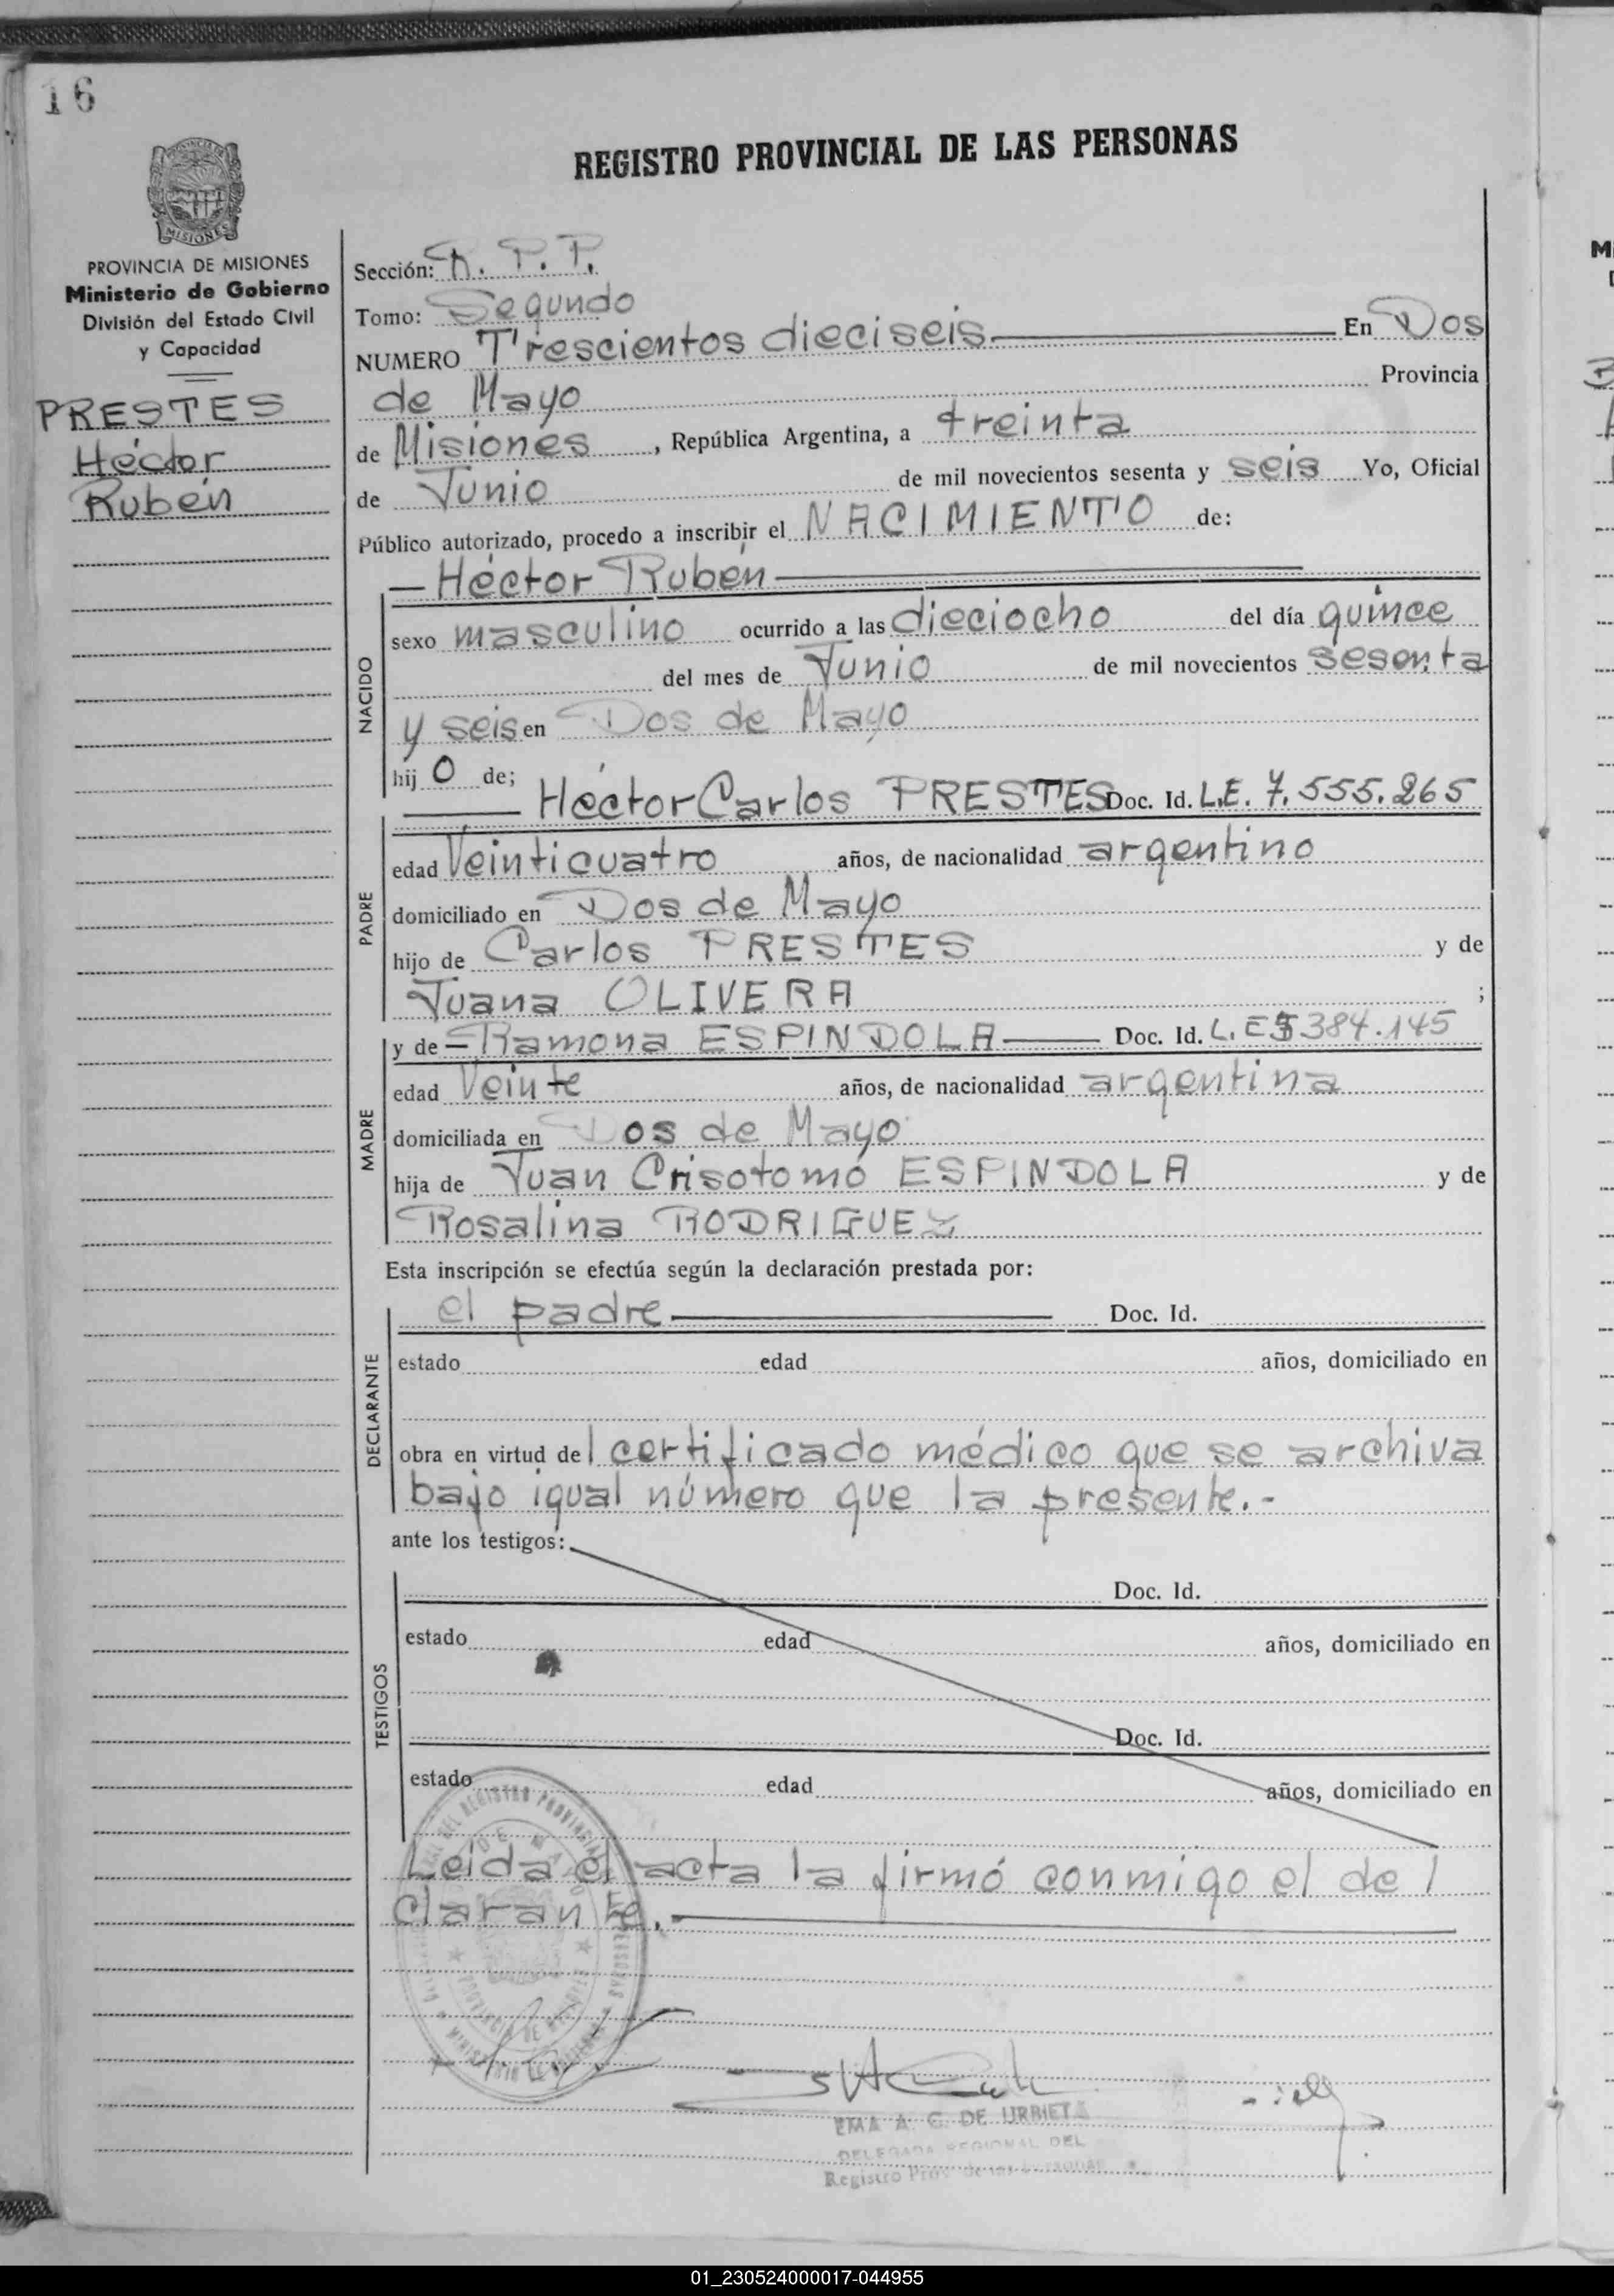 16
REGISTRO PROVINCIAL DE LAS PERSONAS
MISIONES
PROVINCIA DE MISIONES
Ministerio de Gobierno
División del Estado Civil
y Capacidad
PRESTES
Héctor
Rubén
Sección: R. P. P.
Tomo: Segundo
NUMERO Trescientos dieciseis En Dos
de Mayo Provincia
de Misiones, República Argentina, a treinta
de Junio de mil novecientos sesenta y seis Yo, Oficial
Público autorizado, procedo a inscribir el NACIMIENTO de:
— Héctor Rubén
NACIDO
sexo masculino ocurrido a las dieciocho del día quince
del mes de Junio de mil novecientos sesenta
y seis en Dos de Mayo
hijo de;
Héctor Carlos PRESTES Doc. Id. L.E. 7.555.265
PADRE
edad Veinticuatro años, de nacionalidad argentino
domiciliado en Dos de Mayo
hijo de Carlos PRESTES y de
Juana OLIVERA ;
y de — Ramona ESPINDOLA — Doc. Id. L.E 384.145
MADRE
edad Veinte años, de nacionalidad argentina
domiciliada en Dos de Mayo
hija de Juan Crisotomo ESPINDOLA y de
Rosalina RODRIGUEZ
Esta inscripción se efectúa según la declaración prestada por:
el padre Doc. Id.
DECLARANTE
estado edad años, domiciliado en
obra en virtud del certificado médico que se archiva
bajo igual número que la presente.-
ante los testigos:
Doc. Id.
TESTIGOS
estado edad años, domiciliado en
Doc. Id.
estado edad años, domiciliado en
Leida el acta la firmó conmigo el de
clarante.
EMA A. C. DE URBIETA
DELEGADA REGIONAL DEL
Registro Prov. de las Personas
01_230524000017-044955